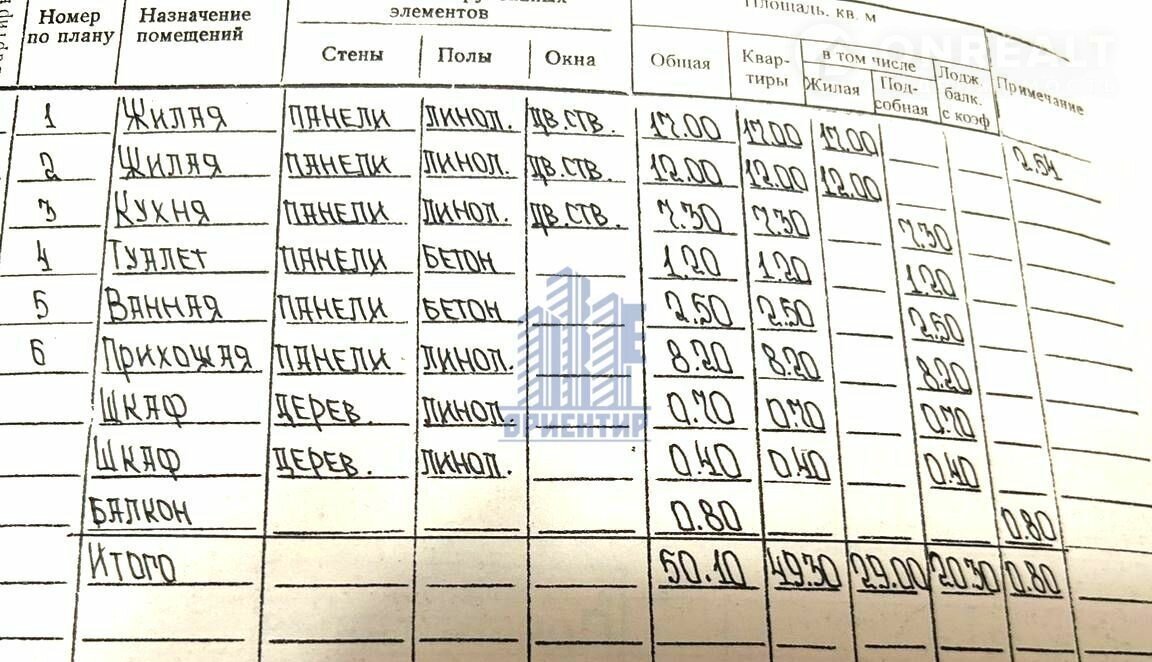 элементов
Площадь, кв. м
Номер по плану Назначение помещений Стены Полы Окна Общая Квартиры в том числе Жилая Подсобная Лодж. балк. с коэф Примечание
1 ЖИЛАЯ ПАНЕЛИ ЛИНОЛ. ДВ.СТВ. 17.00 17.00 17.00 2.54
2 ЖИЛАЯ ПАНЕЛИ ЛИНОЛ. ДВ.СТВ. 12.00 12.00 12.00
3 КУХНЯ ПАНЕЛИ ЛИНОЛ. ДВ.СТВ. 7.30 7.30 7.30
4 ТУАЛЕТ ПАНЕЛИ БЕТОН 1.20 1.20 1.20
5 ВАННАЯ ПАНЕЛИ БЕТОН 2.50 2.50 2.50
6 ПРИХОЖАЯ ПАНЕЛИ ЛИНОЛ. 8.20 8.20 8.20
ШКАФ ДЕРЕВ. ЛИНОЛ. 0.70 0.70 0.70
ШКАФ ДЕРЕВ. ЛИНОЛ. 0.40 0.40 0.40
БАЛКОН 0.80 0.80
ИТОГО 50.10 49.30 29.00 20.30 0.80
ОРИЕНТИР
ONREALT